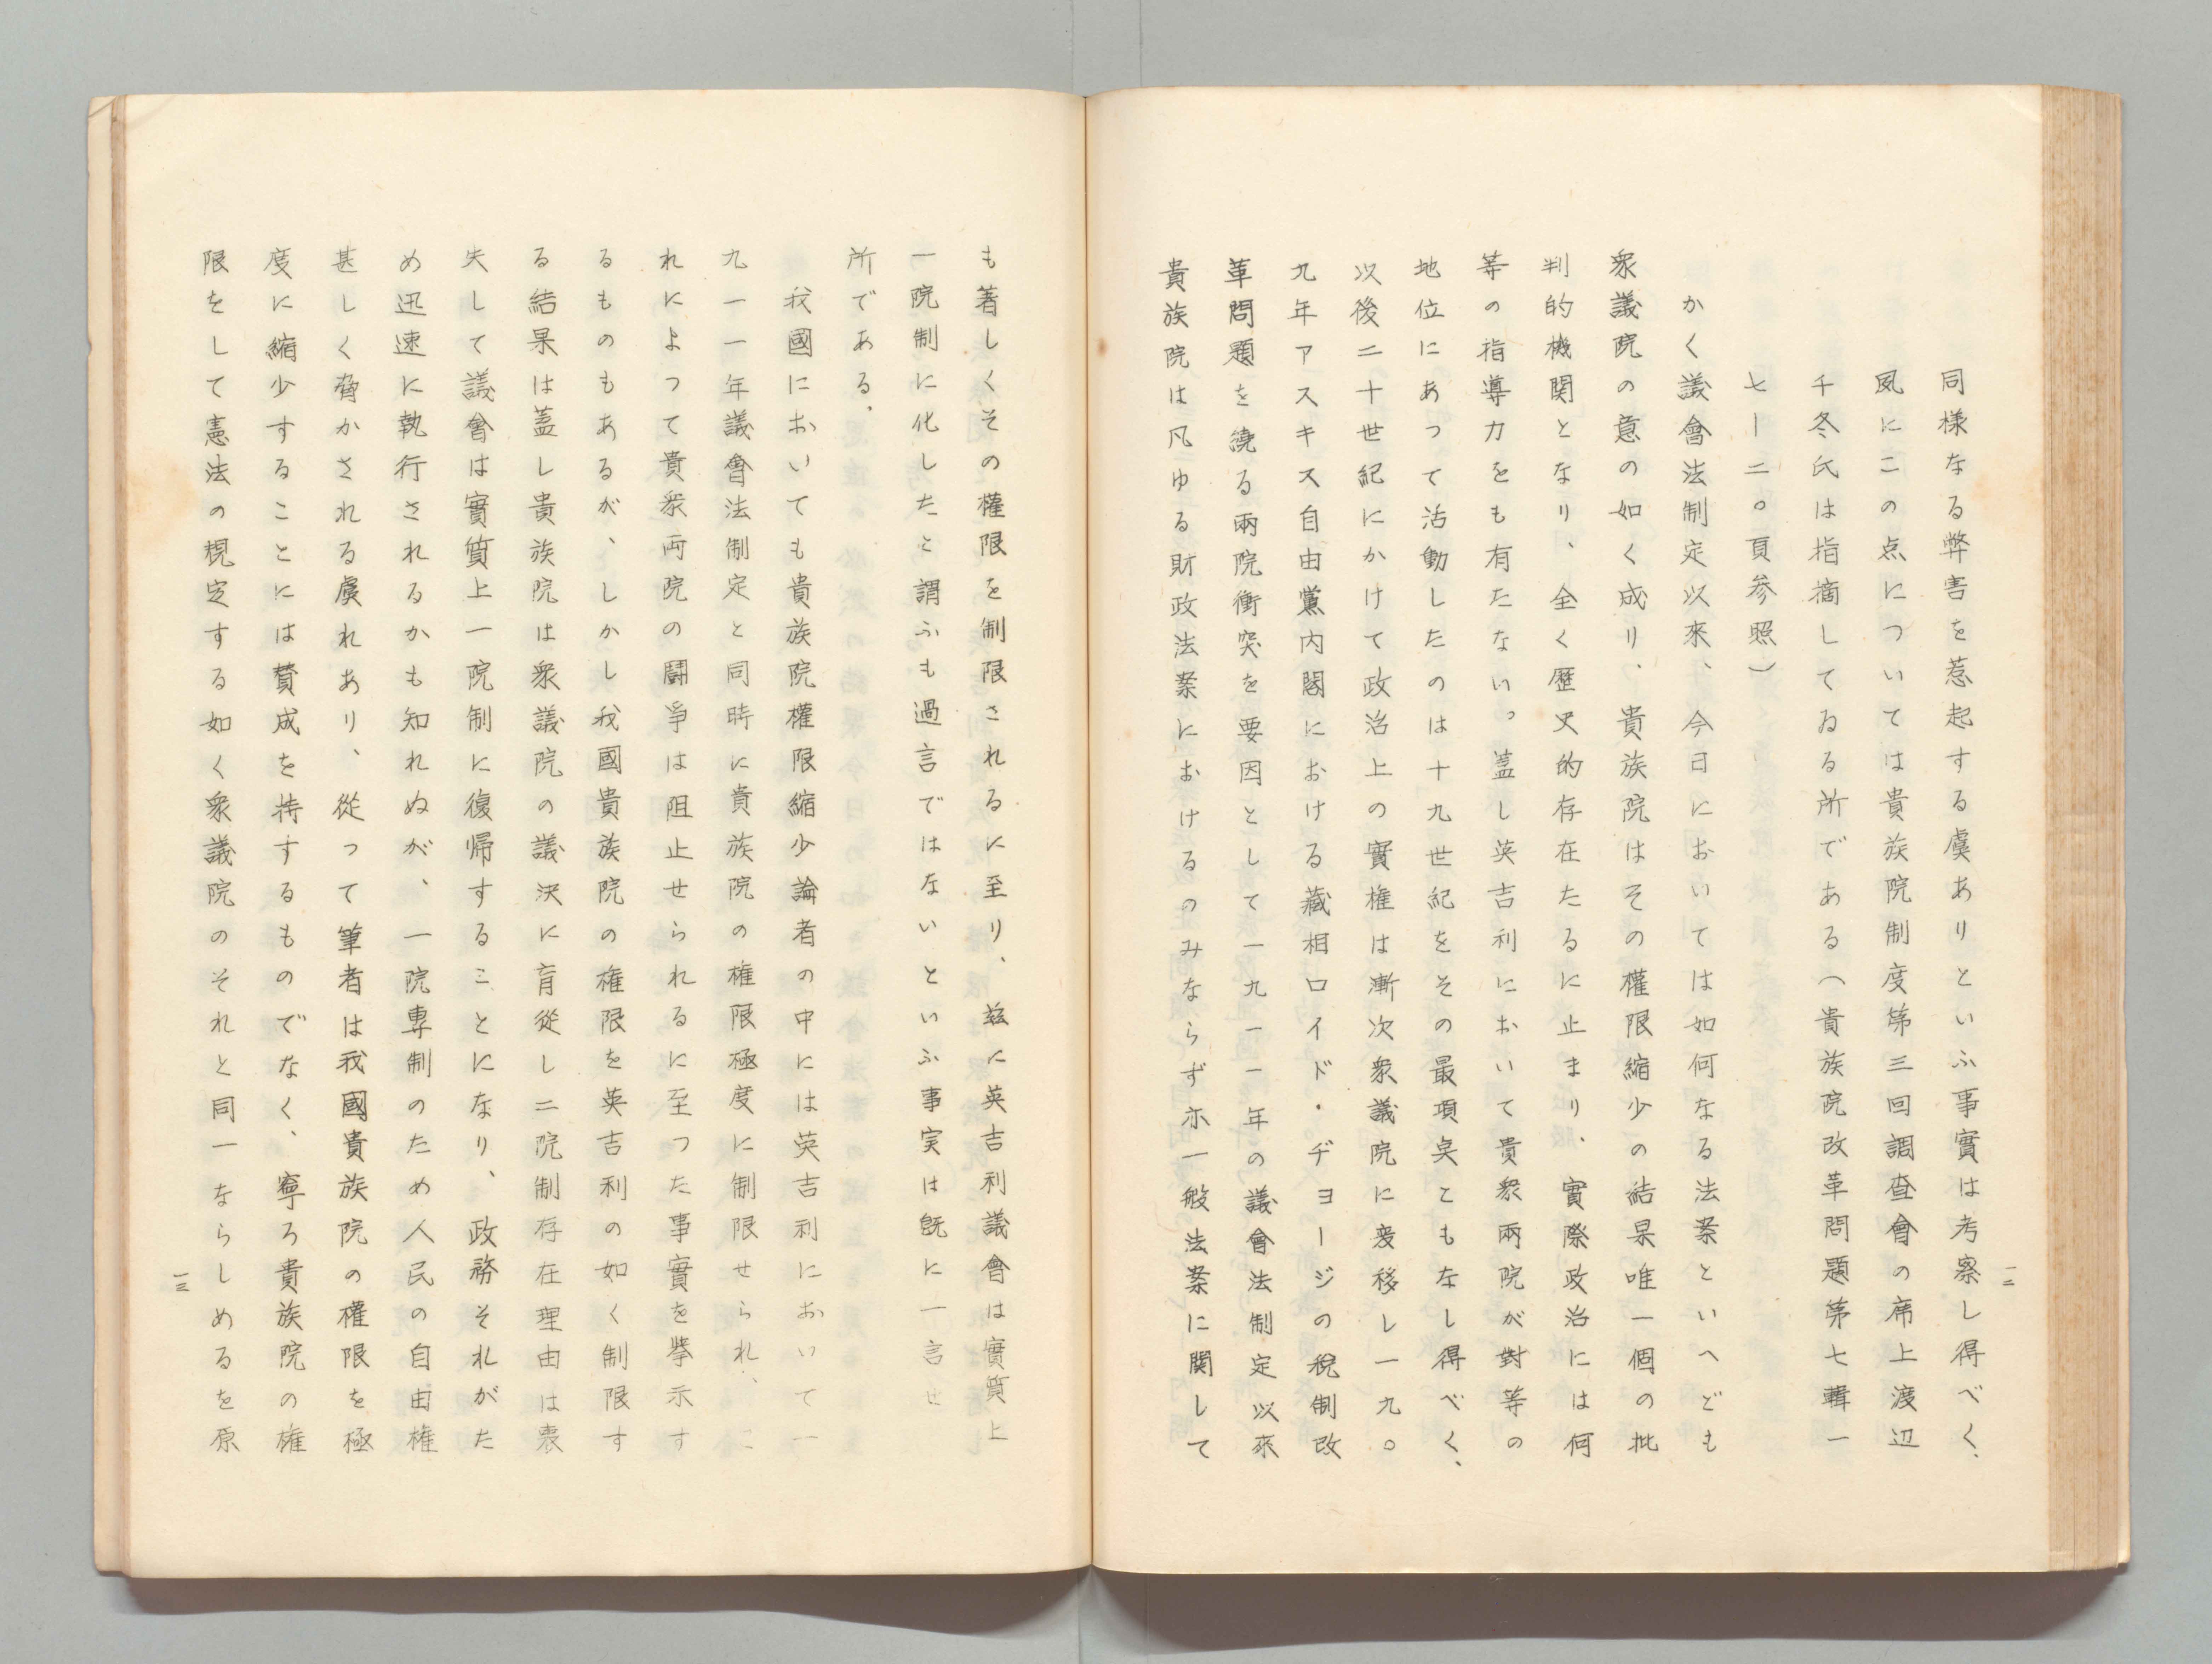 同様なる弊害を惹起する虞ありといふ事實は考察し得べく、
夙にこの点については貴族院制度第三回調査會の席上渡辺
千冬氏は指摘してゐる所である（貴族院改革問題第七輯一
七ー二〇頁参照）
かく議會法制定以來、今日においては如何なる法案といへども
衆議院の意の如く成り、貴族院はその權限縮少の結果唯一個の批
判的機関となり、全く歴史的存在たるに止まり、實際政治には何
等の指導力をも有たない。蓋し英吉利において貴衆兩院が對等の
地位にあつて活動したのは十九世紀をその最頂奌ともなし得べく、
以後二十世紀にかけて政治上の實権は漸次衆議院に変移し一九〇
九年アスキス自由黨内閣における藏相ロイド・ヂヨージの税制改
革問題を繞る兩院衝突を要因として一九一一年の議會法制定以來
貴族院は凡ゆる財政法案におけるのみならず亦一般法案に関して
一二
も著しくその權限を制限されるに至り、茲に英吉利議會は實質上
一院制に化したと謂ふも過言ではないといふ事実は既に一言せ
所である、
我國においても貴族院權限縮少論者の中には英吉利において一
九一一年議會法制定と同時に貴族院の権限極度に制限せられ、こ
れによつて貴衆両院の鬪爭は阻止せられるに至つた事實を挙示す
るものもあるが、しかし我國貴族院の権限を英吉利の如く制限す
る結果は蓋し貴族院は衆議院の議決に盲從し二院制存在理由は喪
失して議會は實質上一院制に復帰することになり、政務それがた
め迅速に執行されるかも知れぬが、一院専制のため人民の自由権
甚しく脅かされる虞れあり、從つて筆者は我國貴族院の權限を極
度に縮少することには賛成を持するものでなく、寧ろ貴族院の権
限をして憲法の規定する如く衆議院のそれと同一ならしめるを原
一三